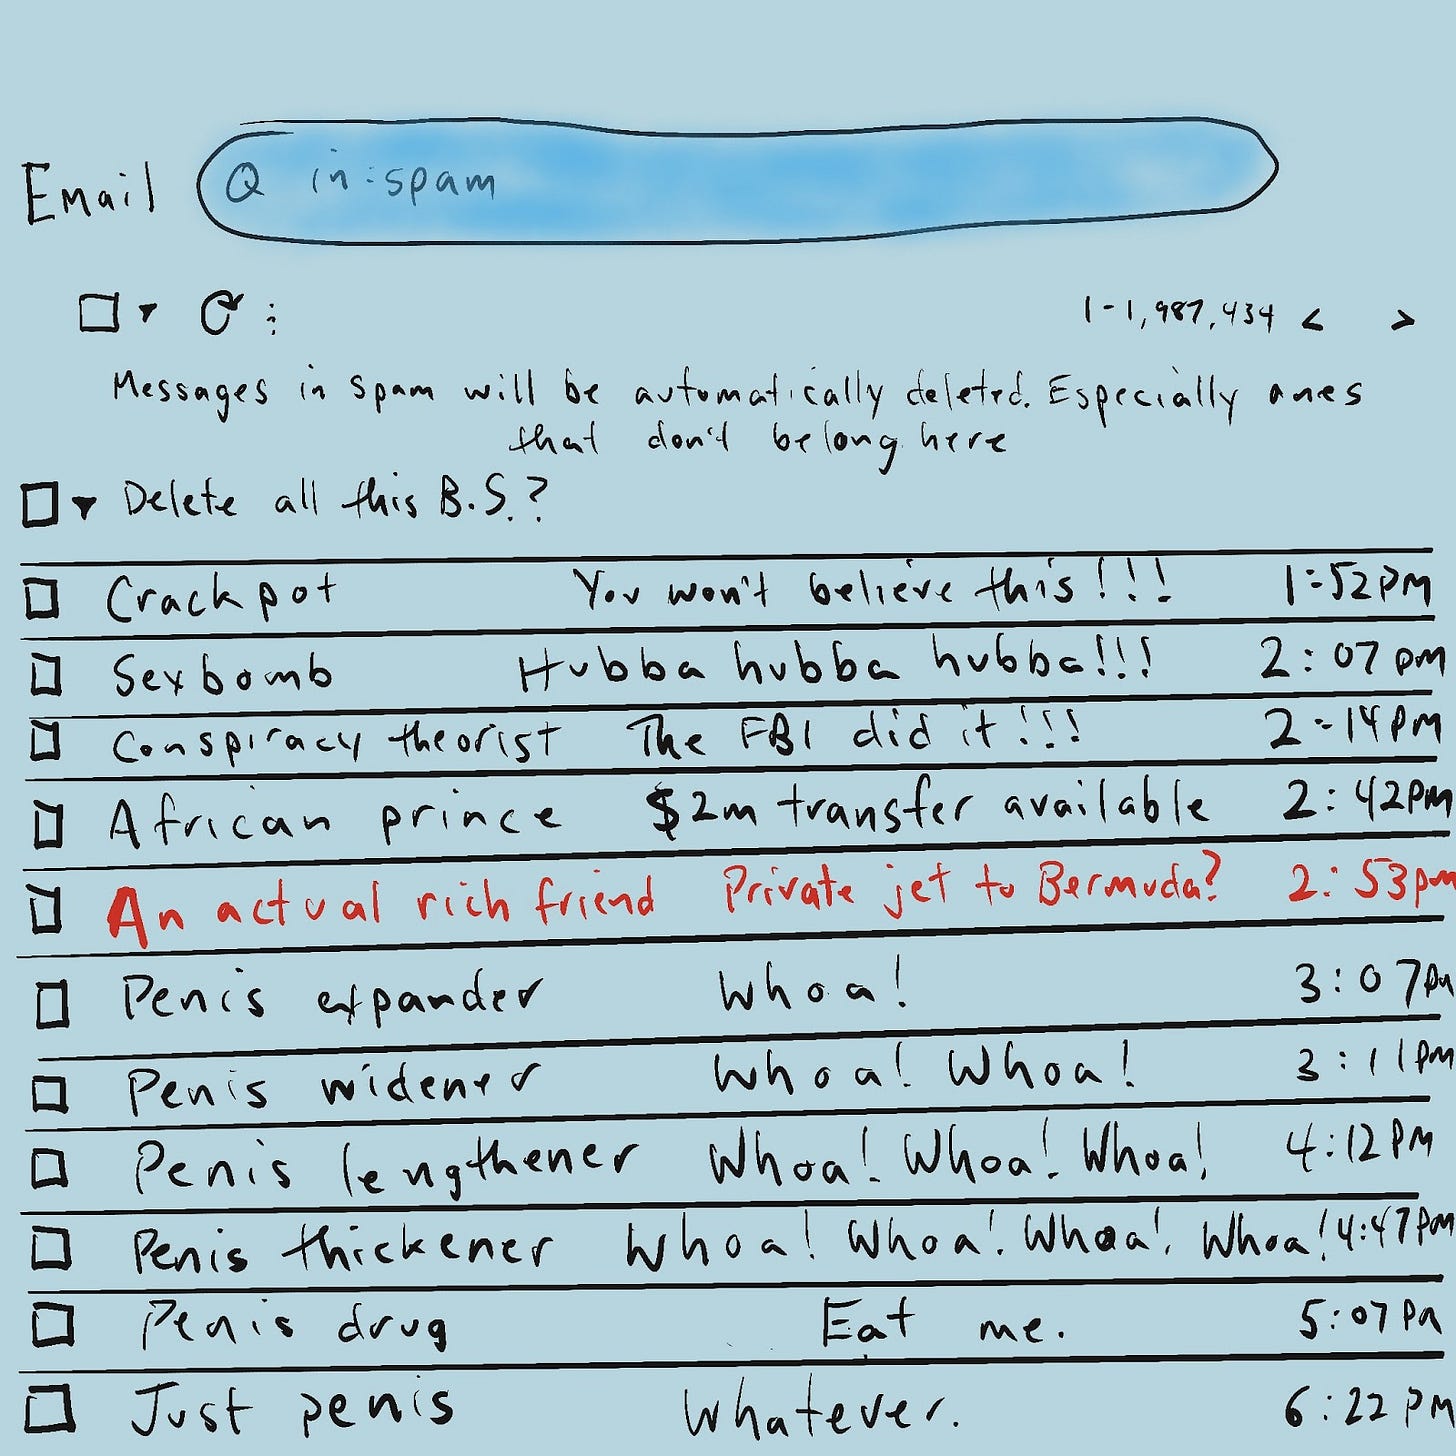 Email Q in:spam
1-1,987,434 < >
Messages in spam will be automatically deleted. Especially ones
that don't belong here
Delete all this B.S.?
Crackpot You won't believe this!!! 1:52PM
Sexbomb Hubba hubba hubba!!! 2:07pm
Conspiracy theorist The FBI did it!!! 2:14PM
African prince $2m transfer available 2:42PM
An actual rich friend Private jet to Bermuda? 2:53pm
Penis expander Whoa! 3:07pm
Penis widener Whoa! Whoa! 3:11PM
Penis lengthener Whoa! Whoa! Whoa! 4:12PM
Penis thickener Whoa! Whoa! Whoa! Whoa! 4:47PM
Penis drug Eat me. 5:07PM
Just penis Whatever. 6:22PM